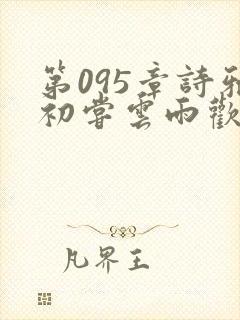 第095章詩雅
初嘗雲雨歡
凡界王